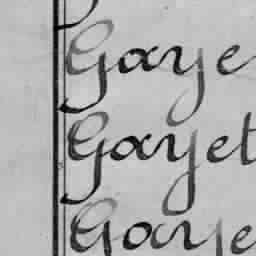 Gaye
Gayet
Gaye